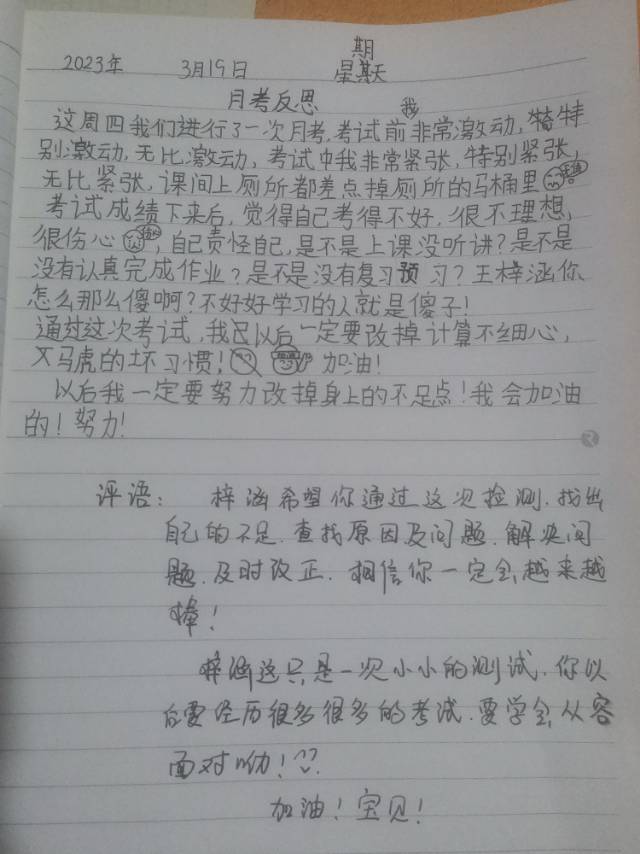 期
2023年 3月19日 星期天
月考反思 我
这周四我们进行了一次月考,考试前非常激动,特
别激动,无比激动,考试中我非常紧张,特别紧张,
无比紧张,课间上厕所都差点掉厕所的马桶里
考试成绩下来后,觉得自己考得不好,很不理想,
很伤心,自己责怪自己,是不是上课没听讲?是不是
没有认真完成作业?是不是没有复习预习?王梓涵你
怎么那么傻啊?不好好学习的人就是傻子!
通过这次考试,我以后一定要改掉计算不细心,
马虎的坏习惯! 加油!
以后我一定要努力改掉身上的不足点!我会加油
的!努力!
评语: 梓涵希望你通过这次检测.找出
自己的不足.查找原因及问题.解决问
题.及时改正.相信你一定会越来越
棒!
梓涵这只是一次小小的测试.你以
后要经历很多很多的考试.要学会从容
面对呦!
加油!宝贝!